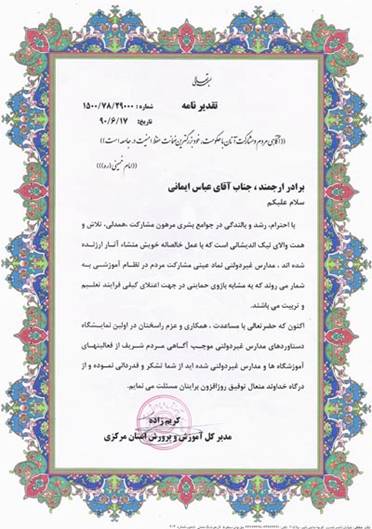 بسمه تعالی
تقدیر نامه
شماره : ۱۵۰۰/۷۸/۲۹۰۰۰
تاریخ: ۹۰/۶/۱۷
((آگاهی مردم و مشارکت آنان با حکومت، خود بزرگترین ضمانت حفظ امنیت در جامعه است))
((امام خمینی(ره)))
برادر ارجمند ، جناب آقای عباس ایمانی
سلام علیکم
با احترام، رشد و بالندگی در جوامع بشری مرهون مشارکت ،همدلی، تلاش و
همت والای نیک اندیشانی است که با عمل خالصانه خویش منشاء آثار ارزنده
شده اند ، مدارس غیردولتی نماد عینی مشارکت مردم در نظام آموزشی به
شمار می روند که به مثابه بازوی حمایتی در جهت اعتلای کیفی فرایند تعلیم
و تربیت می باشند.
اکنون که حضرتعالی با مساعدت ، همکاری و عزم راسختان در اولین نمایشگاه
دستاوردهای مدارس غیردولتی موجب آگاهی مردم شریف از فعالیتهای
آموزشگاه ها و مدارس غیردولتی شده اید از شما تشکر و قدردانی نموده و از
درگاه خداوند متعال توفیق روزافزون برایتان مسئلت می نمایم.
کریم زاده
مدیر کل آموزش و پرورش استان مرکزی